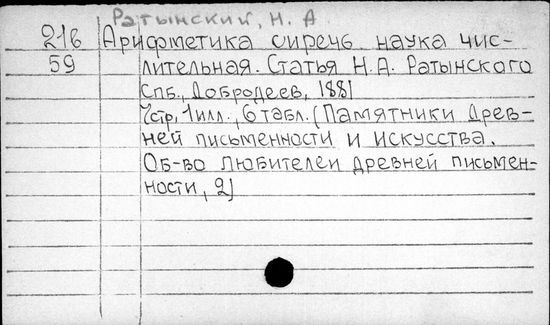 Ратынский, Н. А
216 Арифметика сиречь наука чис-
59 лительная. Статья Н.А. Ратынского
Спб., Добродеев, 1881
7стр, 1илл., 6табл. (Памятники древ-
ней письменности и искусства.
Об-во любителей древней письмен-
ности, 2)